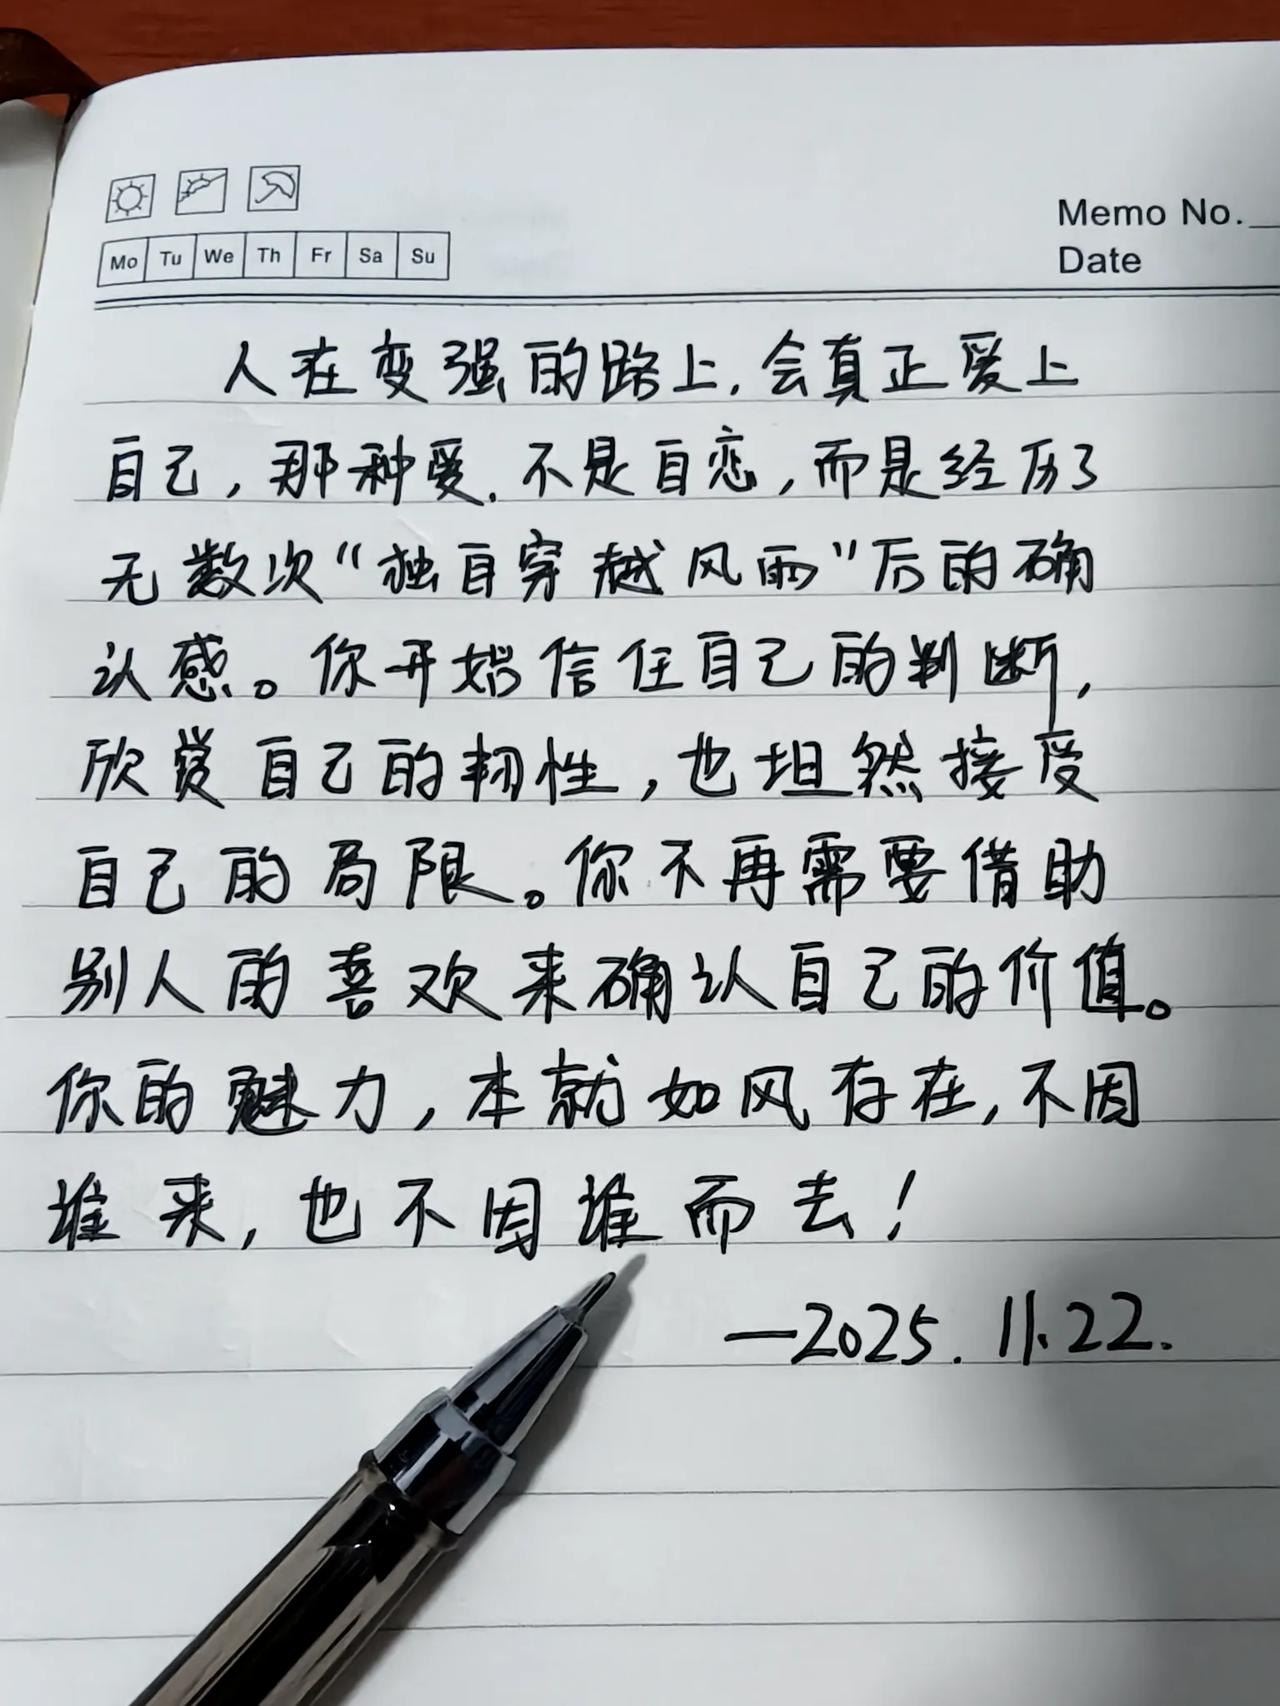 Memo No.
Mo Tu We Th Fr Sa Su
Date
人在变强的路上，会真正爱上
自己，那种爱，不是自恋，而是经历了
无数次“独自穿越风雨”后的确
认感。你开始信任自己的判断，
欣赏自己的韧性，也坦然接受
自己的局限。你不再需要借助
别人的喜欢来确认自己的价值。
你的魅力，本就如风存在，不因
谁来，也不因谁而去！
—2025.11.22.